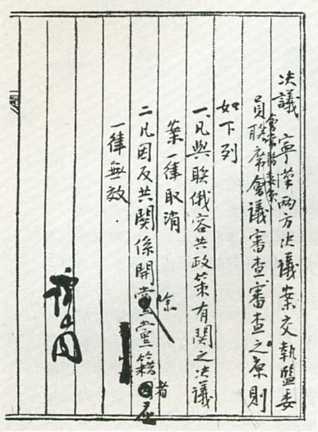 決議 寧漢兩方決議案交執監委
員聯席會議審查審查之原則
如下列
一凡與聯俄容共政策有關之決議
案一律取消
二凡因反共關係開除黨籍者
一律無效.